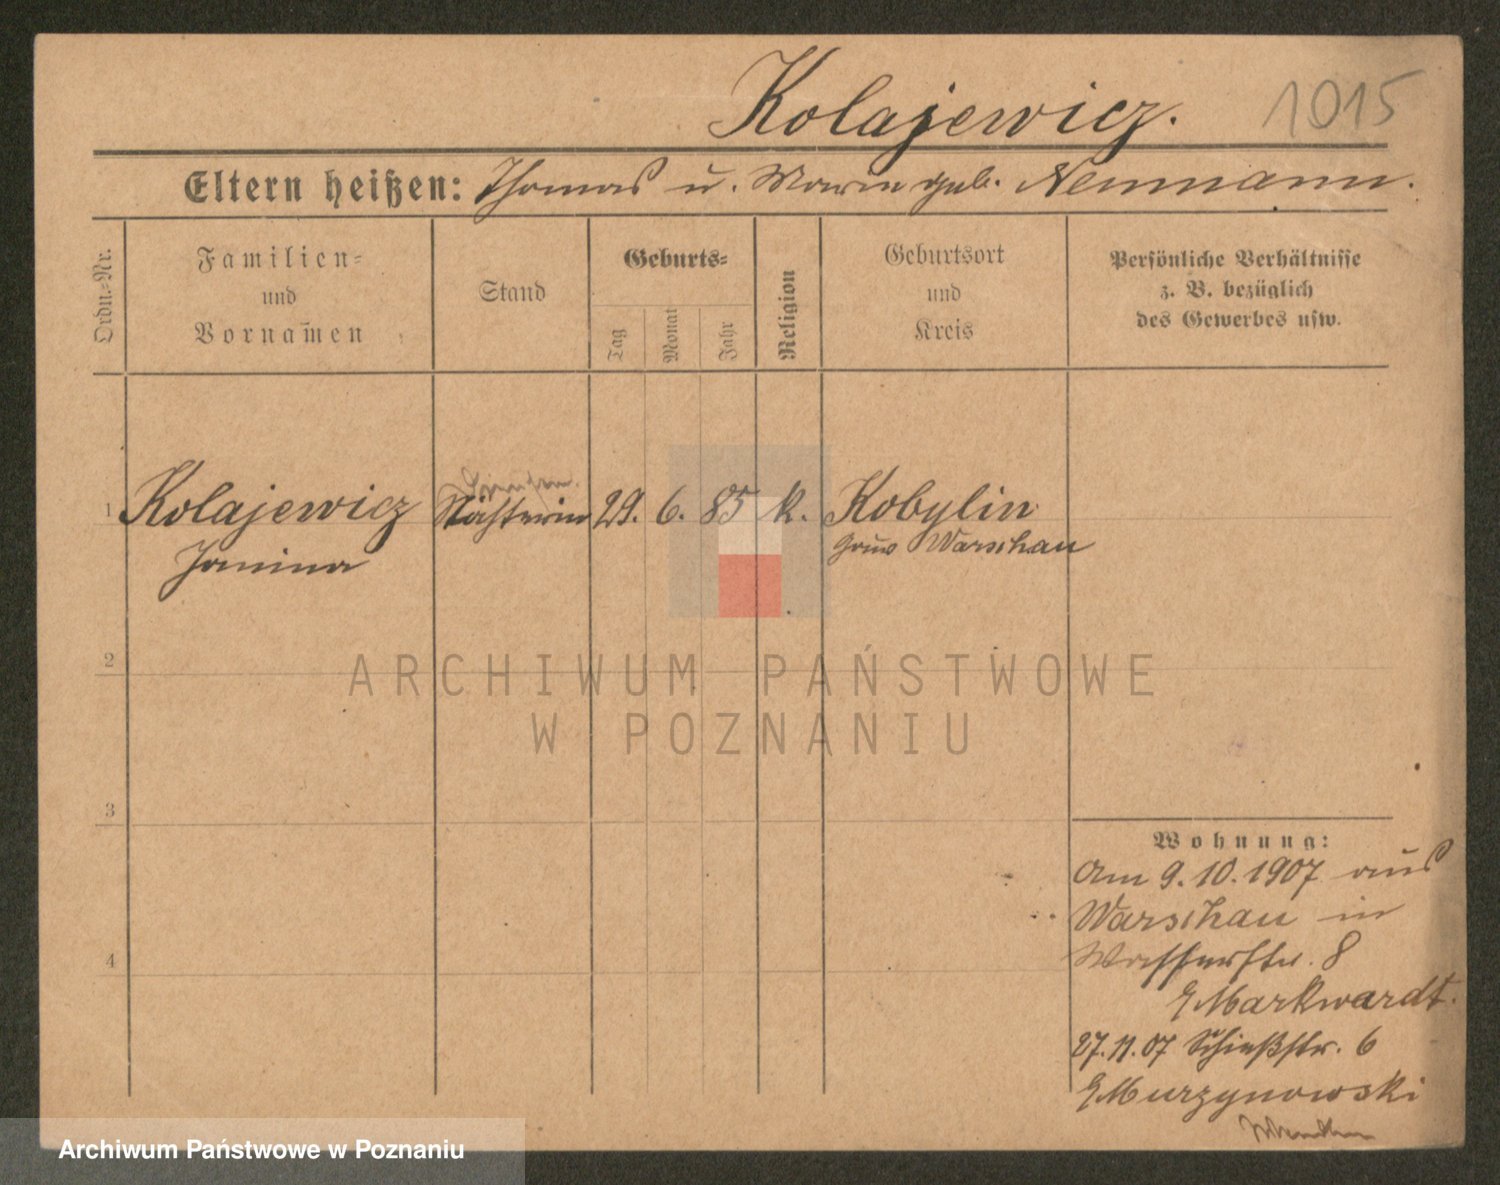 Kolajewicz.
1015
Eltern heißen: Thomas u. Marie geb. Neumann.
Ordn.-Nr.
Familien-
und
Vornamen
Stand
Geburts-
Tag
Monat
Jahr
Religion
Geburtsort
und
Kreis
Persönliche Verhältnisse
z. B. bezüglich
des Gewerbes usw.
1
Kolajewicz
Janina
29. 6. 85 k.
Kobylin
Gouv Warschau
2
3
4
ARCHIWUM PAŃSTWOWE
W POZNANIU
Wohnung:
Am 9.10.1907 aus
Warschau in
Wasserstr. 8
Markwardt.
27.11.07 Schießstr. 6
Murzynowski
Archiwum Państwowe w Poznaniu